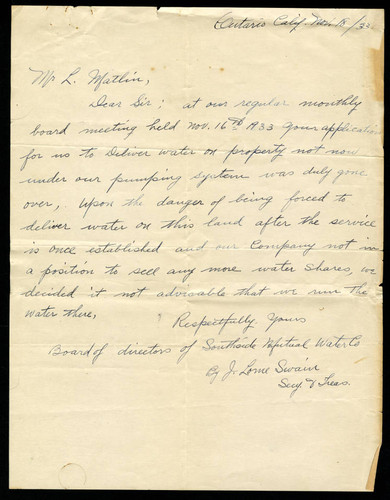 Ontario Calif. Nov. 18/33
Mr L. Matlin,
Dear Sir; at our regular monthly
board meeting held Nov. 16th 1933 your application
for us to Deliver water on property not now
under our pumping system was duly gone
over, upon the danger of being forced to
deliver water on this land after the service
is once established and our Company not in
a position to sell any more water shares, we
decided it not advisable that we run the
water there,
Respectfully Yours
Board of directors of Southside Mutual Water Co
By J. Lorne Swain
Secy. & Treas.